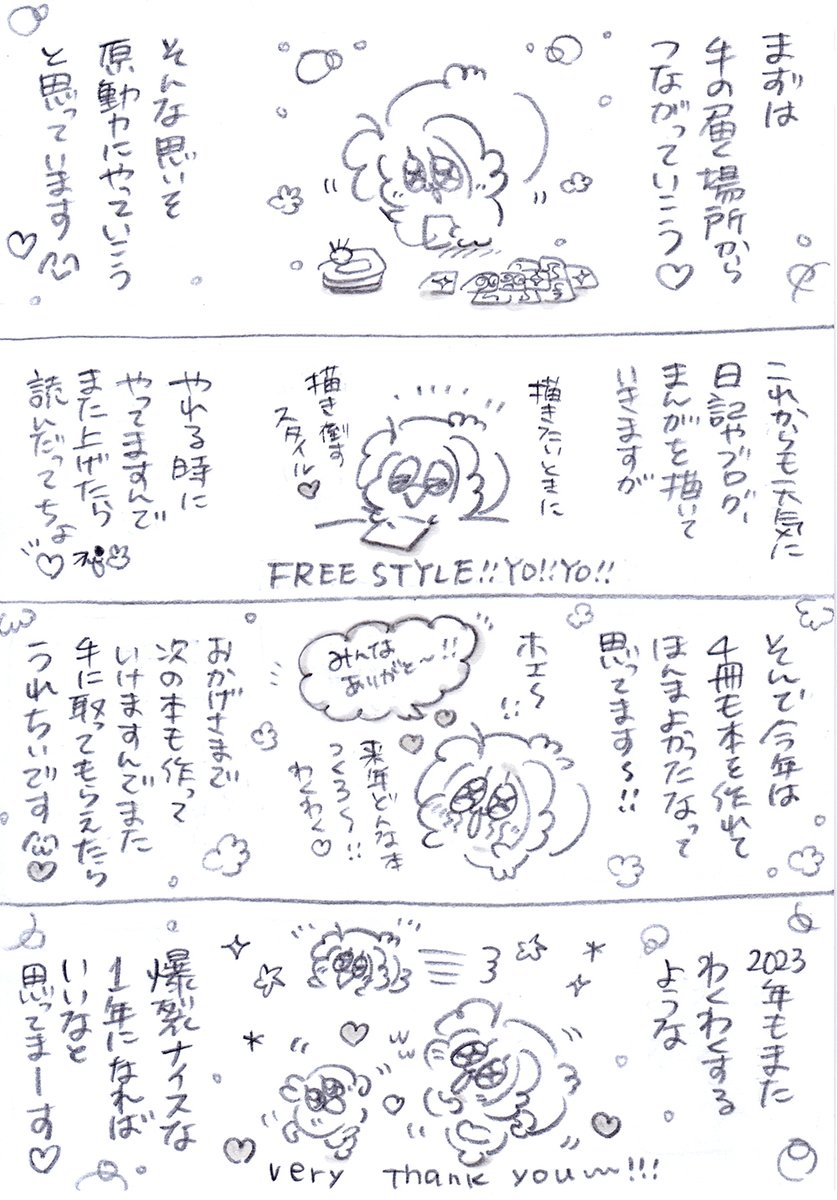 まずは
手の届く場所から
つながっていこう♡
そんな思いを
原動力にやっていこう
と思っています
これからも元気に
日記やブログ、
まんがを描いて
いきますが
描きたいときに
描き倒す
スタイル♡
FREE STYLE!!YO!!YO!!
やれる時に
やってますんで
また上げたら
読んだってちょ
そんで今年は
4冊も本を作れて
ほんまよかったなって
思ってます〜!!
ホエ〜!!
みんな
ありがと〜!!
来年どんな本
つくろ〜!!
わくわく♡
おかげさまで
次の本も作って
いけますんでまた
手に取ってもらえたら
うれちいです
2023年もまた
わくわくする
ような
爆裂ナイスな
1年になれば
いいなと
思ってまーす♡
very Thank you〜!!!